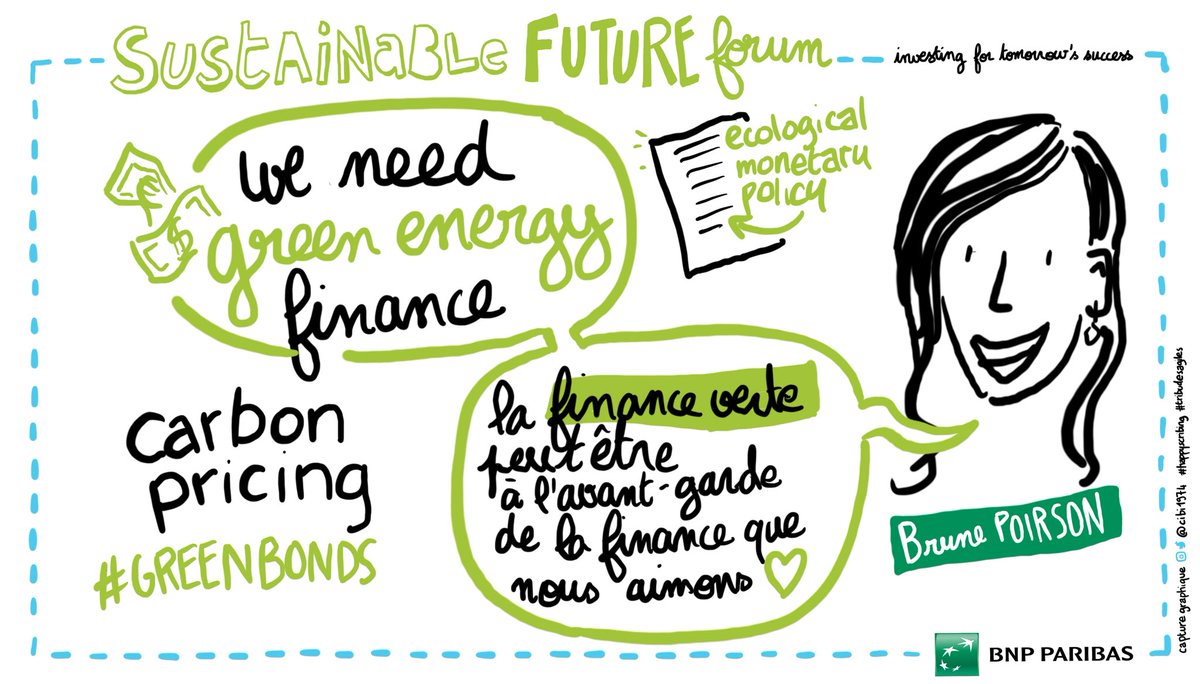 SUSTAINABLE FUTURE forum
investing for tomorrow's success
we need
green energy
finance
ecological
monetary
policy
carbon
pricing
#GREENBONDS
la finance verte
peut être
à l'avant-garde
de la finance que
nous aimons
Brune POIRSON
BNP PARIBAS
capture graphique @cibi1974 #happyscribing #tribudesagiles